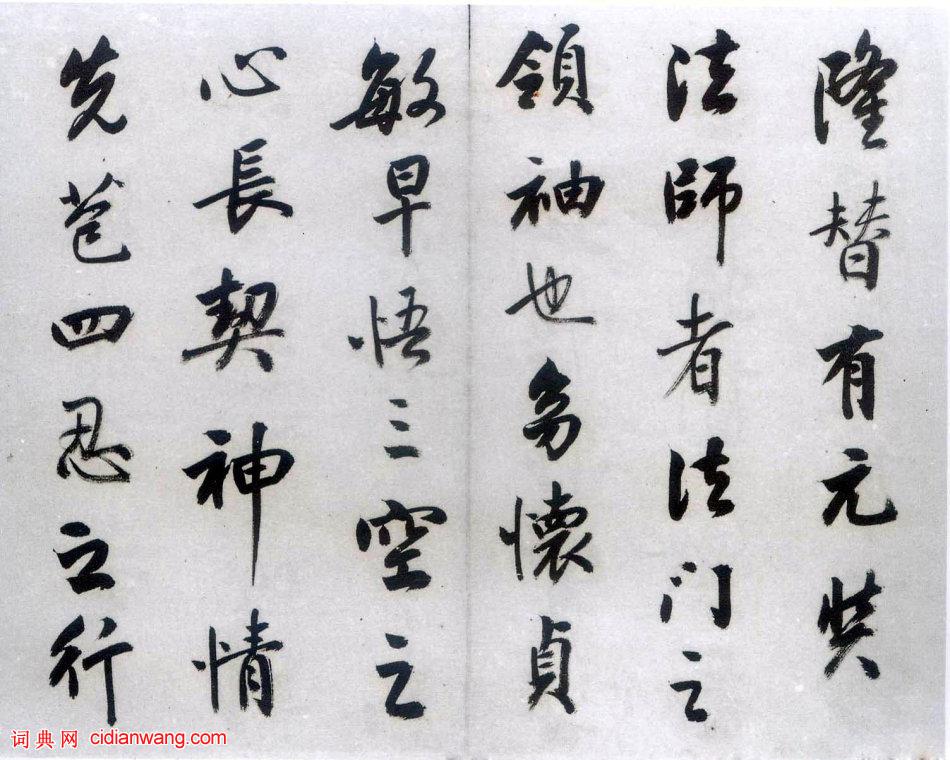 隆替有元奘
法師者法门之
領袖也㓜懷貞
敏早悟三空之
心長契神情
先苞四忍之行
词典网 cidianwang.com